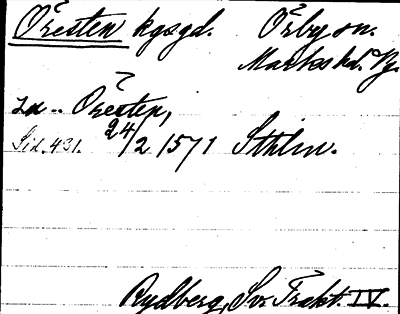 Öresten kgsgd. Örby sn.
Marks hd. Vg.
Öresten,
Sid. 431. 24/2 1571 Sthlm.
Rydberg, Sv. Trakt. IV.